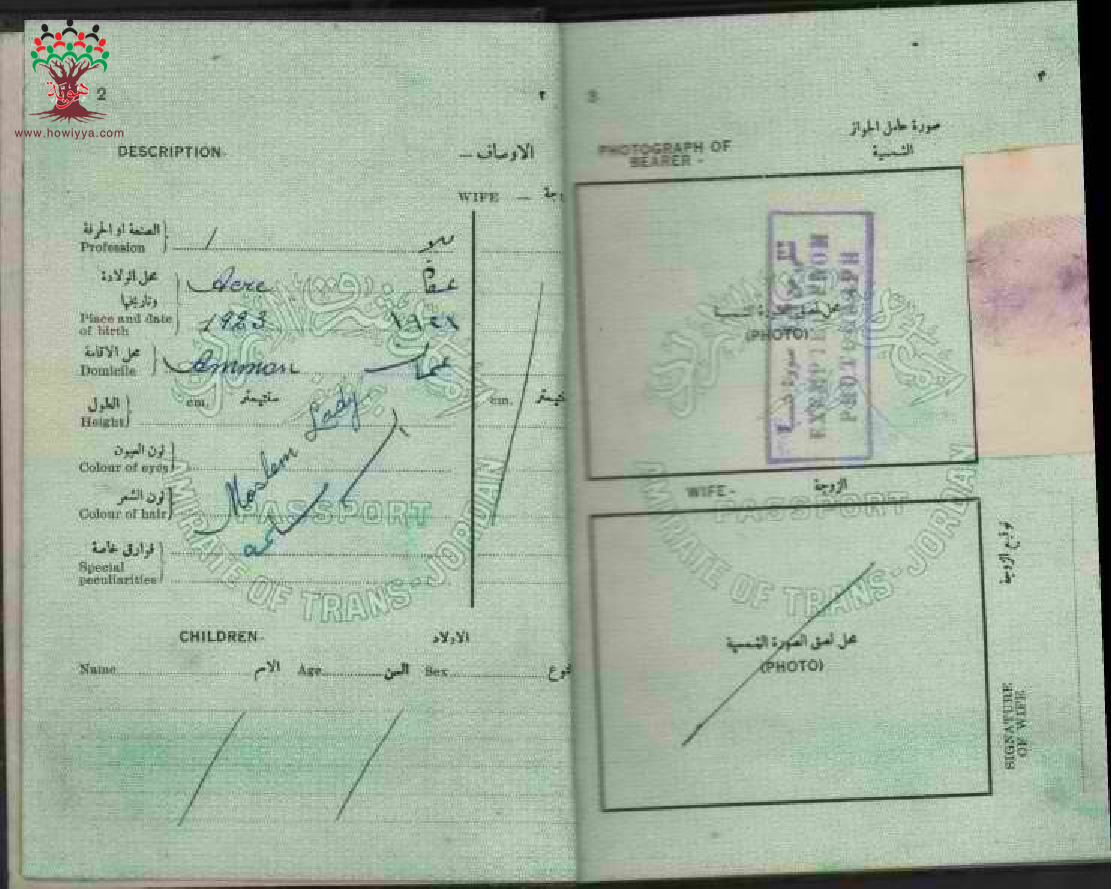 هوية
www.howiyya.com
2
٢
DESCRIPTION-
الاوصاف —
WIFE —
الصنعة او الحرفة
Profession
بلا
محل الولادة
وتاريخها
Place and date
of birth
Acre
عكا
1923
محل الاقامة
Domicile
Amman
عمان
الطول
Height
cm.
سنتيمتر
cm.
لون العيون
Colour of eyes
لون الشعر
Colour of hair
Moslem Lady
فوارق خاصة
Special
peculiarities
PASSPORT
AMIRATE OF TRANS-JORDAN
CHILDREN-
الاولاد
Name
الاسم
Age
السن
Sex
3
صورة حامل الجواز
الشمسية
PHOTOGRAPH OF
BEARER -
محل لصق الصورة الشمسية
(PHOTO)
EXEMPTED FROM
PHOTOGRAPH
WIFE -
الزوجة
PASSPORT
AMIRATE OF TRANS-JORDAN
محل لصق الصورة الشمسية
(PHOTO)
توقيع الزوجة
SIGNATURE
OF WIFE